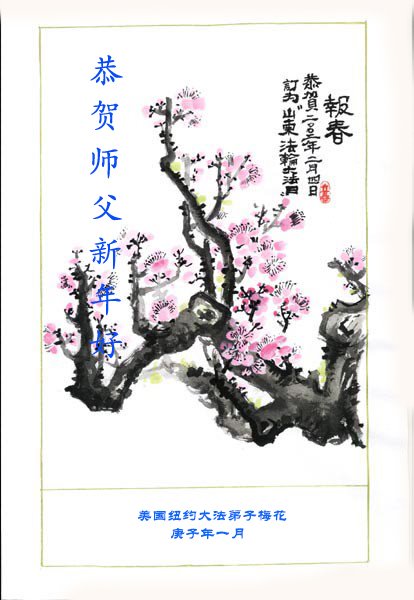 恭贺师父新年好
報春
恭賀二〇〇三年二月四日
訂为“山東法輪大法日”
美国纽约大法弟子梅花
庚子年一月